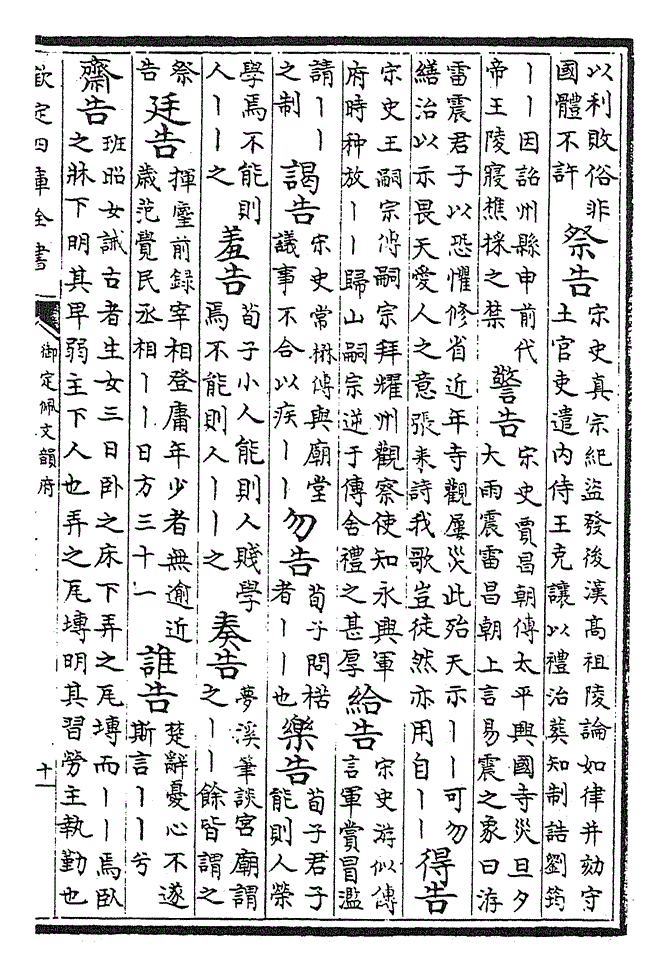 以利敗俗非
國體不許
祭告
宋史真宗紀盜發後漢高祖陵論如律并劾守
土官吏遣内侍王克讓以禮治葬知制誥劉筠
丨丨因詔州縣申前代
帝王陵寢樵採之禁
警告
宋史賈昌朝傳太平興國寺災旦夕
大雨震雷昌朝上言易震之象曰洊
雷震君子以恐懼修省近年寺觀屢災此殆天示丨丨可勿
繕治以示畏天愛人之意張耒詩我歌豈徒然亦用自丨丨
得告
宋史王嗣宗傳嗣宗拜耀州觀察使知永興軍
府時种放丨丨歸山嗣宗逆于傳舍禮之甚厚
給告
宋史游似傳
言軍賞冒濫
請丨丨
之制
謁告
宋史常楙傳與廟堂
議事不合以疾丨丨
勿告
荀子問楛
者丨丨也
樂告
荀子君子
能則人榮
學焉不能則
人丨丨之
羞告
荀子小人能則人賤學
焉不能則人丨丨之
奏告
夢溪筆談宫廟謂
之丨丨餘皆謂之
祭
告
廷告
揮麈前錄宰相登庸年少者無逾近
歲范覺民丞相丨丨日方三十一
誰告
楚辭憂心不遂
斯言丨丨兮
齋告
班昭女誡古者生女三日卧之床下弄之瓦塼而丨丨焉卧
之牀下明其卑弱主下人也弄之瓦塼明其習勞主執勤也
欽定四庫全書
御定佩文韻府
十一